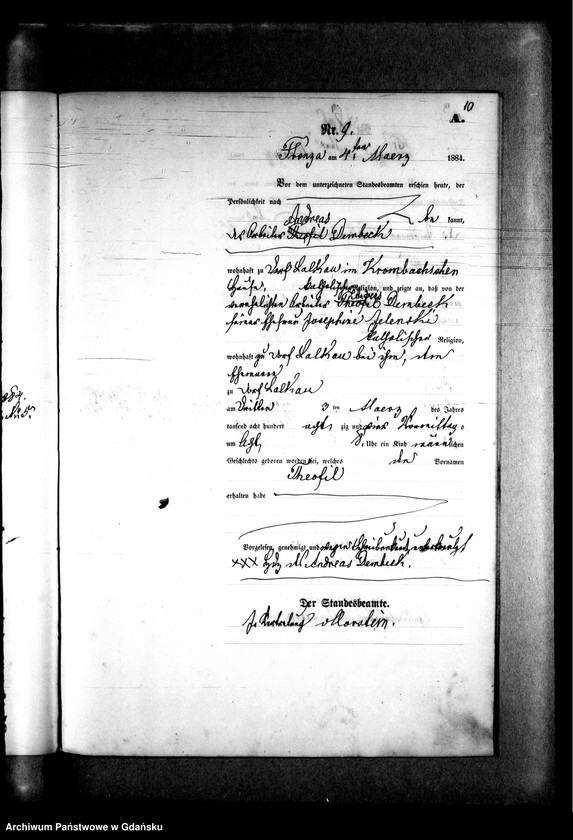 10
A.
Nr. 9.
am 4ten Maerz 1884.
Vor dem unterzeichneten Standesbeamten erschien heute, der
Persönlichkeit nach be kannt,
Andreas
der Arbeiter Theofil Dembeck
wohnhaft zu Dorf Lalkau im Krombachschen
Hause, katholischer Religion, und zeigte an, daß von der
Andreas
verehelichten Arbeiter Theofil Dembeck
seiner Ehefrau Josephine Zelenski
katholischer Religion,
wohnhaft zu Dorf Lalkau bei ihm, dem
Ehemanne
zu Dorf Lalkau
am dritten 3 ten Maerz des Jahres
tausend acht hundert acht zig und vier Vormittag s
um Acht 8. Uhr ein Kind männlichen
Geschlechts geboren worden sei, welches den Vornamen
Theofil
erhalten habe
Vorgelesen, genehmigt und wegen
XXX Hdz des Andreas Dembeck.
Der Standesbeamte.
In Vertretung
Archiwum Państwowe w Gdańsku